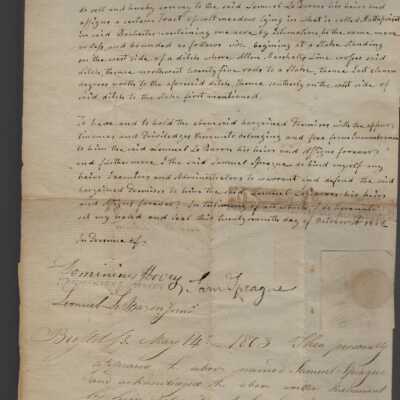 do sell and hereby convey to the said Lemuel Le Baron his heirs and
assigns a certain tract of salt meadow lying in what is called Mattapoisett
in said Rochester containing one acre by Estimation be the same more
or less, and bounded as follows viz. begining at a Stake standing
on the west side of a ditch where Allen line crosses said
ditch, thence northwest twenty five rods to a Stake, thence East eleven
degrees north to the aforesaid ditch, thence southerly on the west side of
said ditch to the Stake first mentioned.
To have and to hold the above said bargained Premises with the appur-
tinances and Priviledges thereunto belonging and free from Incumbrances
to him the said Lemuel Le Baron his heirs and assigns forever
and furthermore I the said Samuel Sprague do bind myself my
heirs Executors and Administrators to warrant and defend the said
bargained Premises to him the said Lemuel Le Baron his heirs
and assigns forever. In testimony of I do hereunto
set my hand and seal this twenty ninth day of October
In Presence of
Dominicus Hovey, Sam Sprague
Lemuel Le Baron Junr
May 14th 1803 Then personally
appeared the above named Samuel Sprague
and acknowledged the above written Instrument